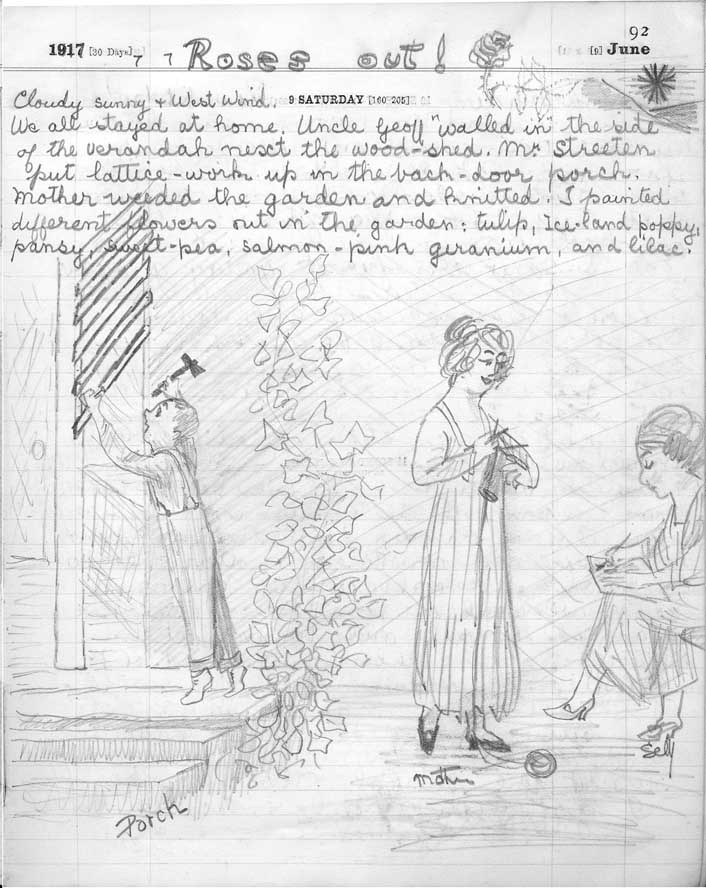 92
1917 [30 Days] 7 7 Roses out! [9] June
Cloudy sunny + West Wind. 9 SATURDAY [160-205]
We all stayed at home. Uncle Geoff "walled in" the side
of the verandah next the wood-shed. Mr Streeten
put lattice-work up in the back-door porch.
Mother weeded the garden and knitted. I painted
different flowers out in the garden: tulip, Ice-land poppy,
pansy, sweet-pea, salmon-pink geranium, and lilac.
Self
Mother
Porch